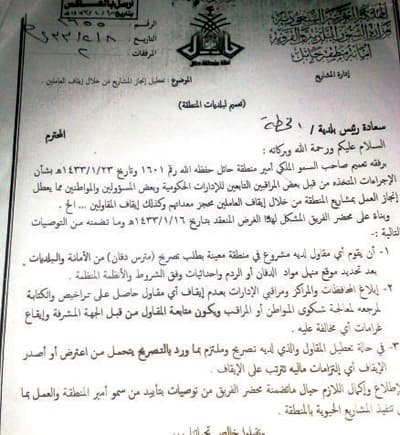 أرسل بالفاكس
المملكة العربية السعودية
وزارة الشؤون البلدية والقروية
أمانة منطقة حائل
إدارة المشاريع
الرقم
٦٥٥
التاريخ
المرفقات ٢
الموضوع: تعطيل إنجاز المشاريع من خلال إيقاف العاملين.
(تعميم لبلديات المنطقة)
سعادة رئيس بلدية / المحترم
السلام عليكم ورحمة الله وبركاته:
برفقه تعميم صاحب السمو الملكي أمير منطقة حائل حفظه الله رقم ١٦٠١ وتاريخ ١٤٣٣/١/٢٣هـ بشأن
الإجراءات المتخذه من قبل بعض المراقبين التابعين للإدارات الحكومية وبعض المسؤولين والمواطنين مما يعطل
إنجاز العمل بمشاريع المنطقة من خلال إيقاف العاملين محجز معداتهم وكذلك إيقاف المقاولين ... الخ.
وبناءً على محضر الفريق المشكل لهذا الغرض المنعقد بتاريخ ١٤٣٣/١/١٦هـ وما تضمنه من التوصيات
التالية:
١- أن يقوم أي مقاول لديه مشروع في منطقة معينة بطلب تصريح (مترس دفان) من الأمانة والبلديات
بعد تحديد موقع منهل مواد الدفان أو الردم واحداثيات وفق الشروط والأنظمة المنظمة.
٢- إبلاغ المحافظات والمراكز ومراقبي الإدارات بعدم إيقاف أي مقاول حاصل على تراخيص والكتابة
لمرجعه لمعالجة شكوى المواطن أو المراقب ويكون متابعة المقاول من قبل الجهة المشرفة وإيقاع
غرامات أي مخالفة عليه.
٣- في حالة تعطيل المقاول والذي لديه تصريح وملتزم بما ورد بالتصريح يتحمل من اعترض أو أصدر
الإيقاف أي إلتزامات ماليه تترتب على الإيقاف.
للإطلاع وإكمال اللازم حيال ماتضمنة محضر الفريق من توصيات بتأييد من سمو أمير المنطقة والعمل بما
تنفيذ المشاريع الحيوية بالمنطقة.